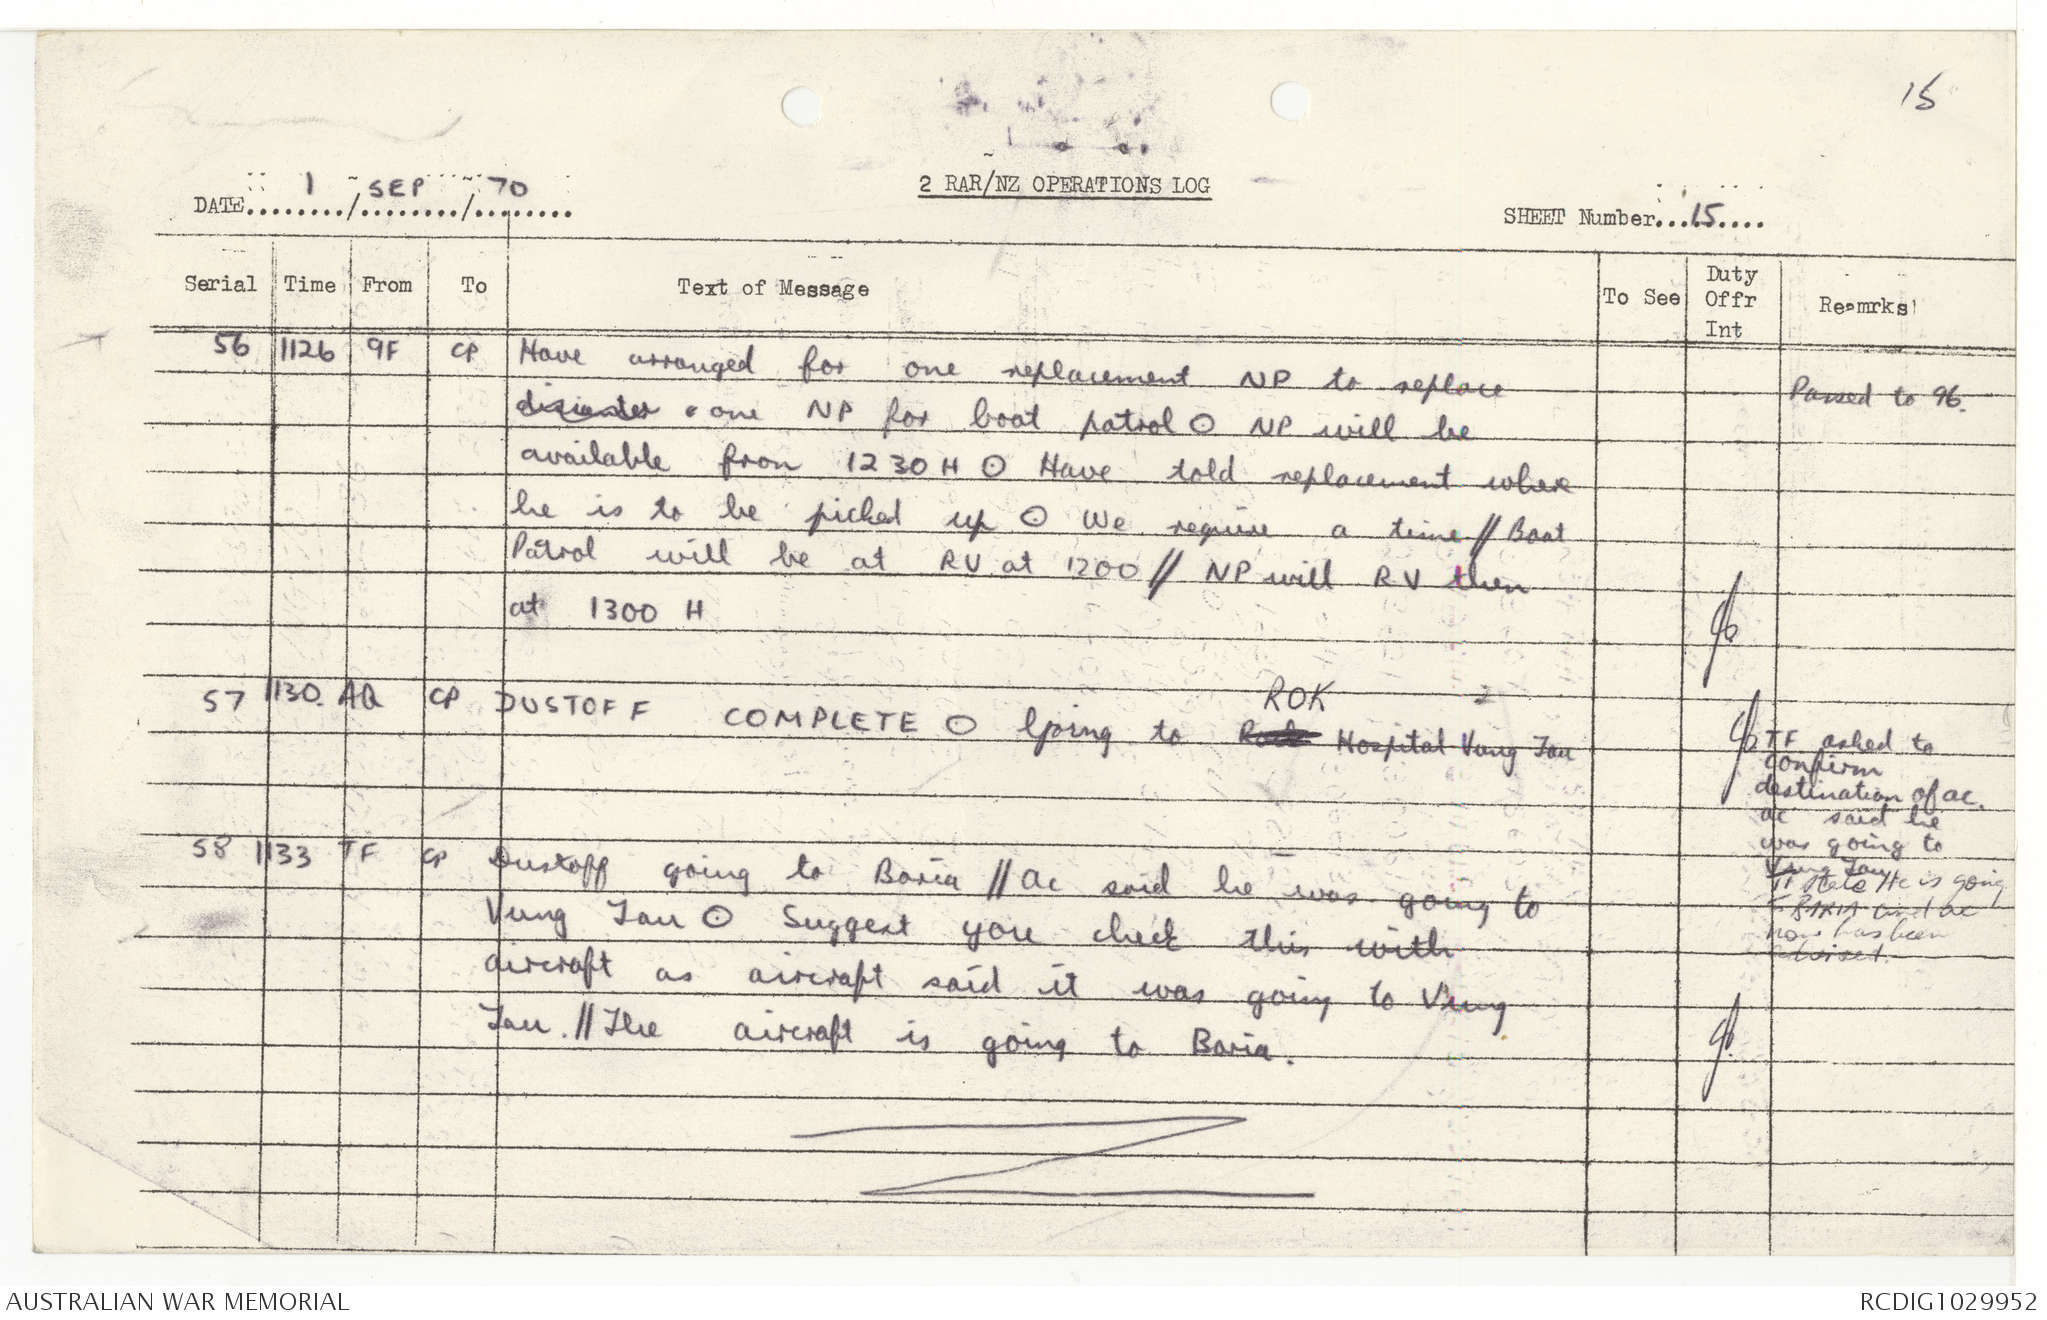 15
DATE 1 / SEP / 70
2 RAR/NZ OPERATIONS LOG
SHEET Number...15....
Serial Time From To Text of Message To See Duty Offr Int Reamrks
56 1126 9F CP Have arranged for one replacement NP to replace
Passed to 96.
one NP for boat patrol ⊙ NP will be
available from 1230H ⊙ Have told replacement where
he is to be picked up ⊙ We require a time // Boat
Patrol will be at RV at 1200 // NP will RV then
at 1300 H
57 1130. AQ CP DUSTOFF COMPLETE ⊙ Going to ROK Hospital Vung Tau
TF asked to
confirm
destination of ac.
ac said he
was going to
Vung Tau
TF state He is going
to BARIA and ac
now has been
advised.
58 1133 TF CP Dustoff going to Baria // Ac said he was going to
Vung Tau ⊙ Suggest you check this with
aircraft as aircraft said it was going to Vung
Tau. // The aircraft is going to Baria.
AUSTRALIAN WAR MEMORIAL
RCDIG1029952